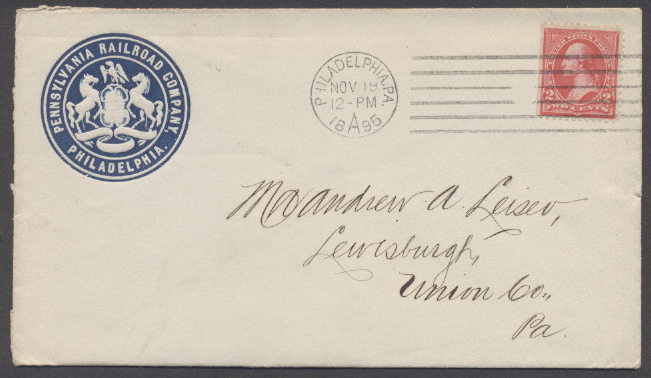 PENNSYLVANIA RAILROAD COMPANY,
PHILADELPHIA.
PHILADELPHIA, PA.
NOV 19
12-PM
A
1895
2 2
TWO CENTS
Mr Andrew A. Leiser,
Lewisburgh,
Union Co.,
Pa.